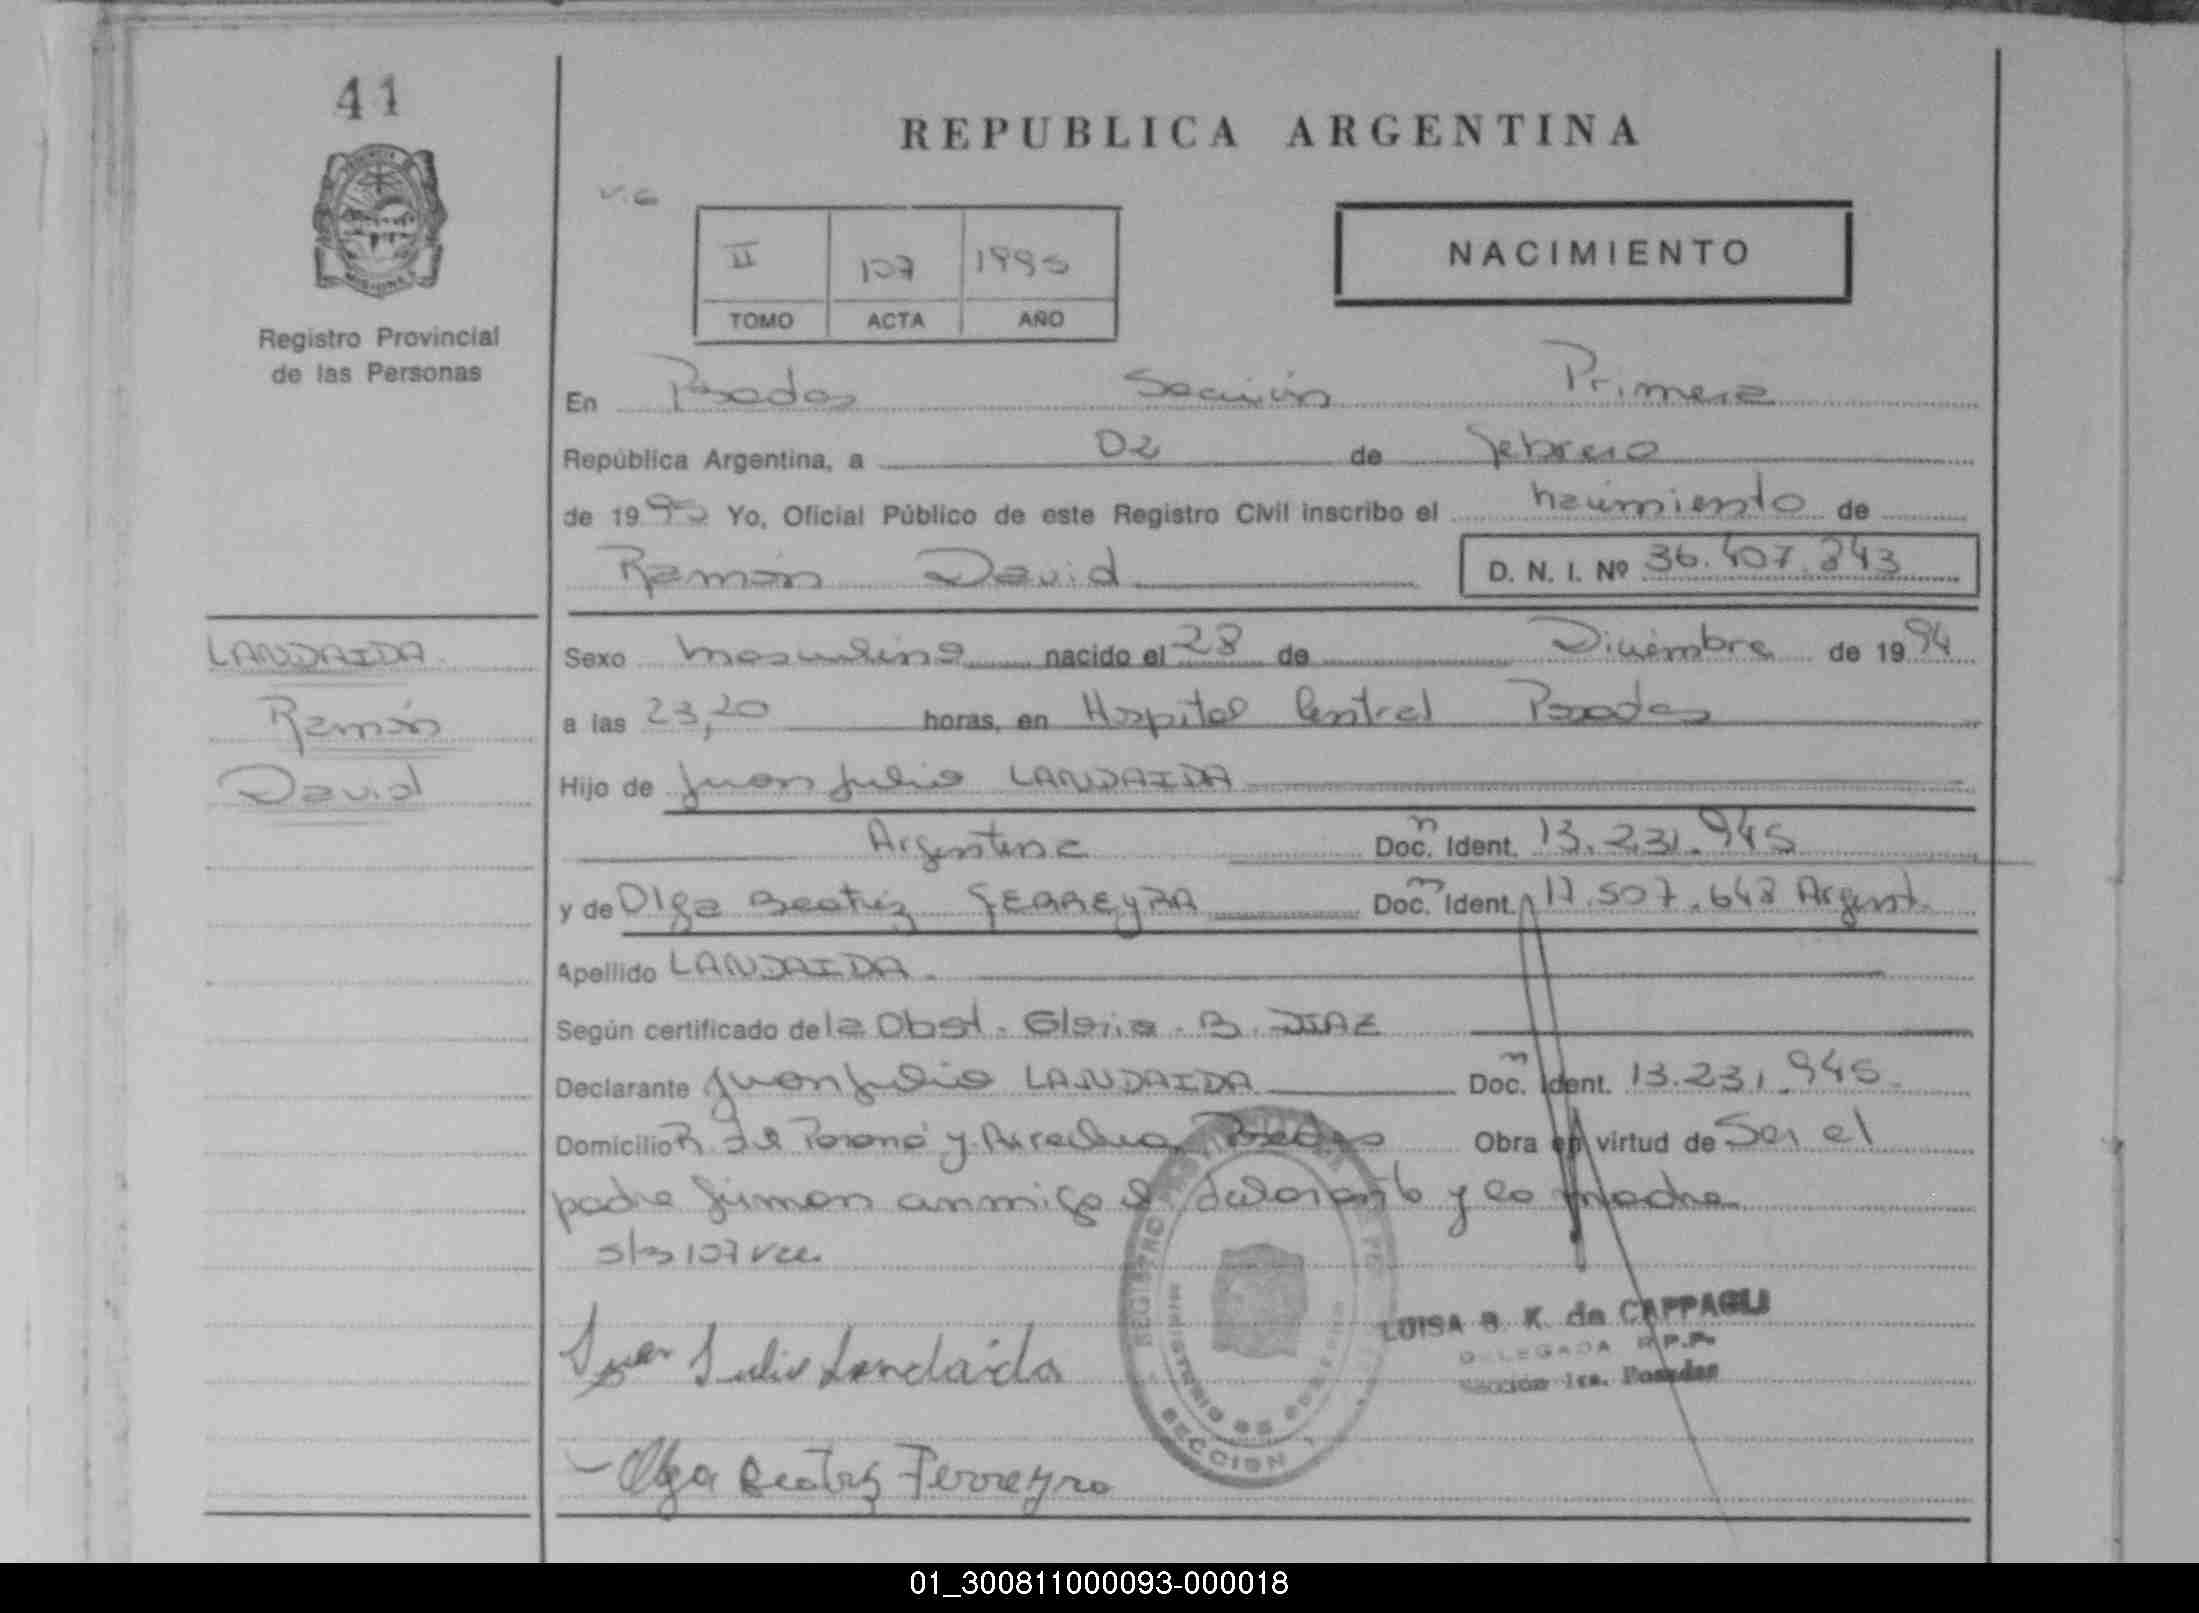 41
REPUBLICA ARGENTINA
V.G
II 107 1995
TOMO ACTA AÑO
NACIMIENTO
Registro Provincial
de las Personas
En Posadas Sección Primera
República Argentina, a 02 de febrero
de 1995 Yo, Oficial Público de este Registro Civil inscribo el nacimiento de
Ramón David D. N. I. Nº 36.407.843
LANDAIDA
Ramón
David
Sexo masculino nacido el 28 de Diciembre de 1994
a las 23,20 horas, en Hospital Central Posadas
Hijo de Juan Julio LANDAIDA
Argentina Doc. n Ident. 13.231.945
y de Olga Beatriz FERREYRA Doc. m Ident. 17.507.648 Argent.
Apellido LANDAIDA.
Según certificado de la Obst. Gloria B. DIAZ
Declarante Juan Julio LANDAIDA Doc. m Ident. 13.231.945.
Domicilio R. del Paraná y Posadas Obra en virtud de Ser el
padre firman conmigo el declarante y la madre
107
Juan Julio Landaida
Olga Beatriz Ferreyra
REGISTRO
MINISTERIO DE GOBIERNO
SECCION 1
LUISA B. K. de CAPPAGLI
DELEGADA R.P.P.
Sección 1ra. Posadas
01_300811000093-000018